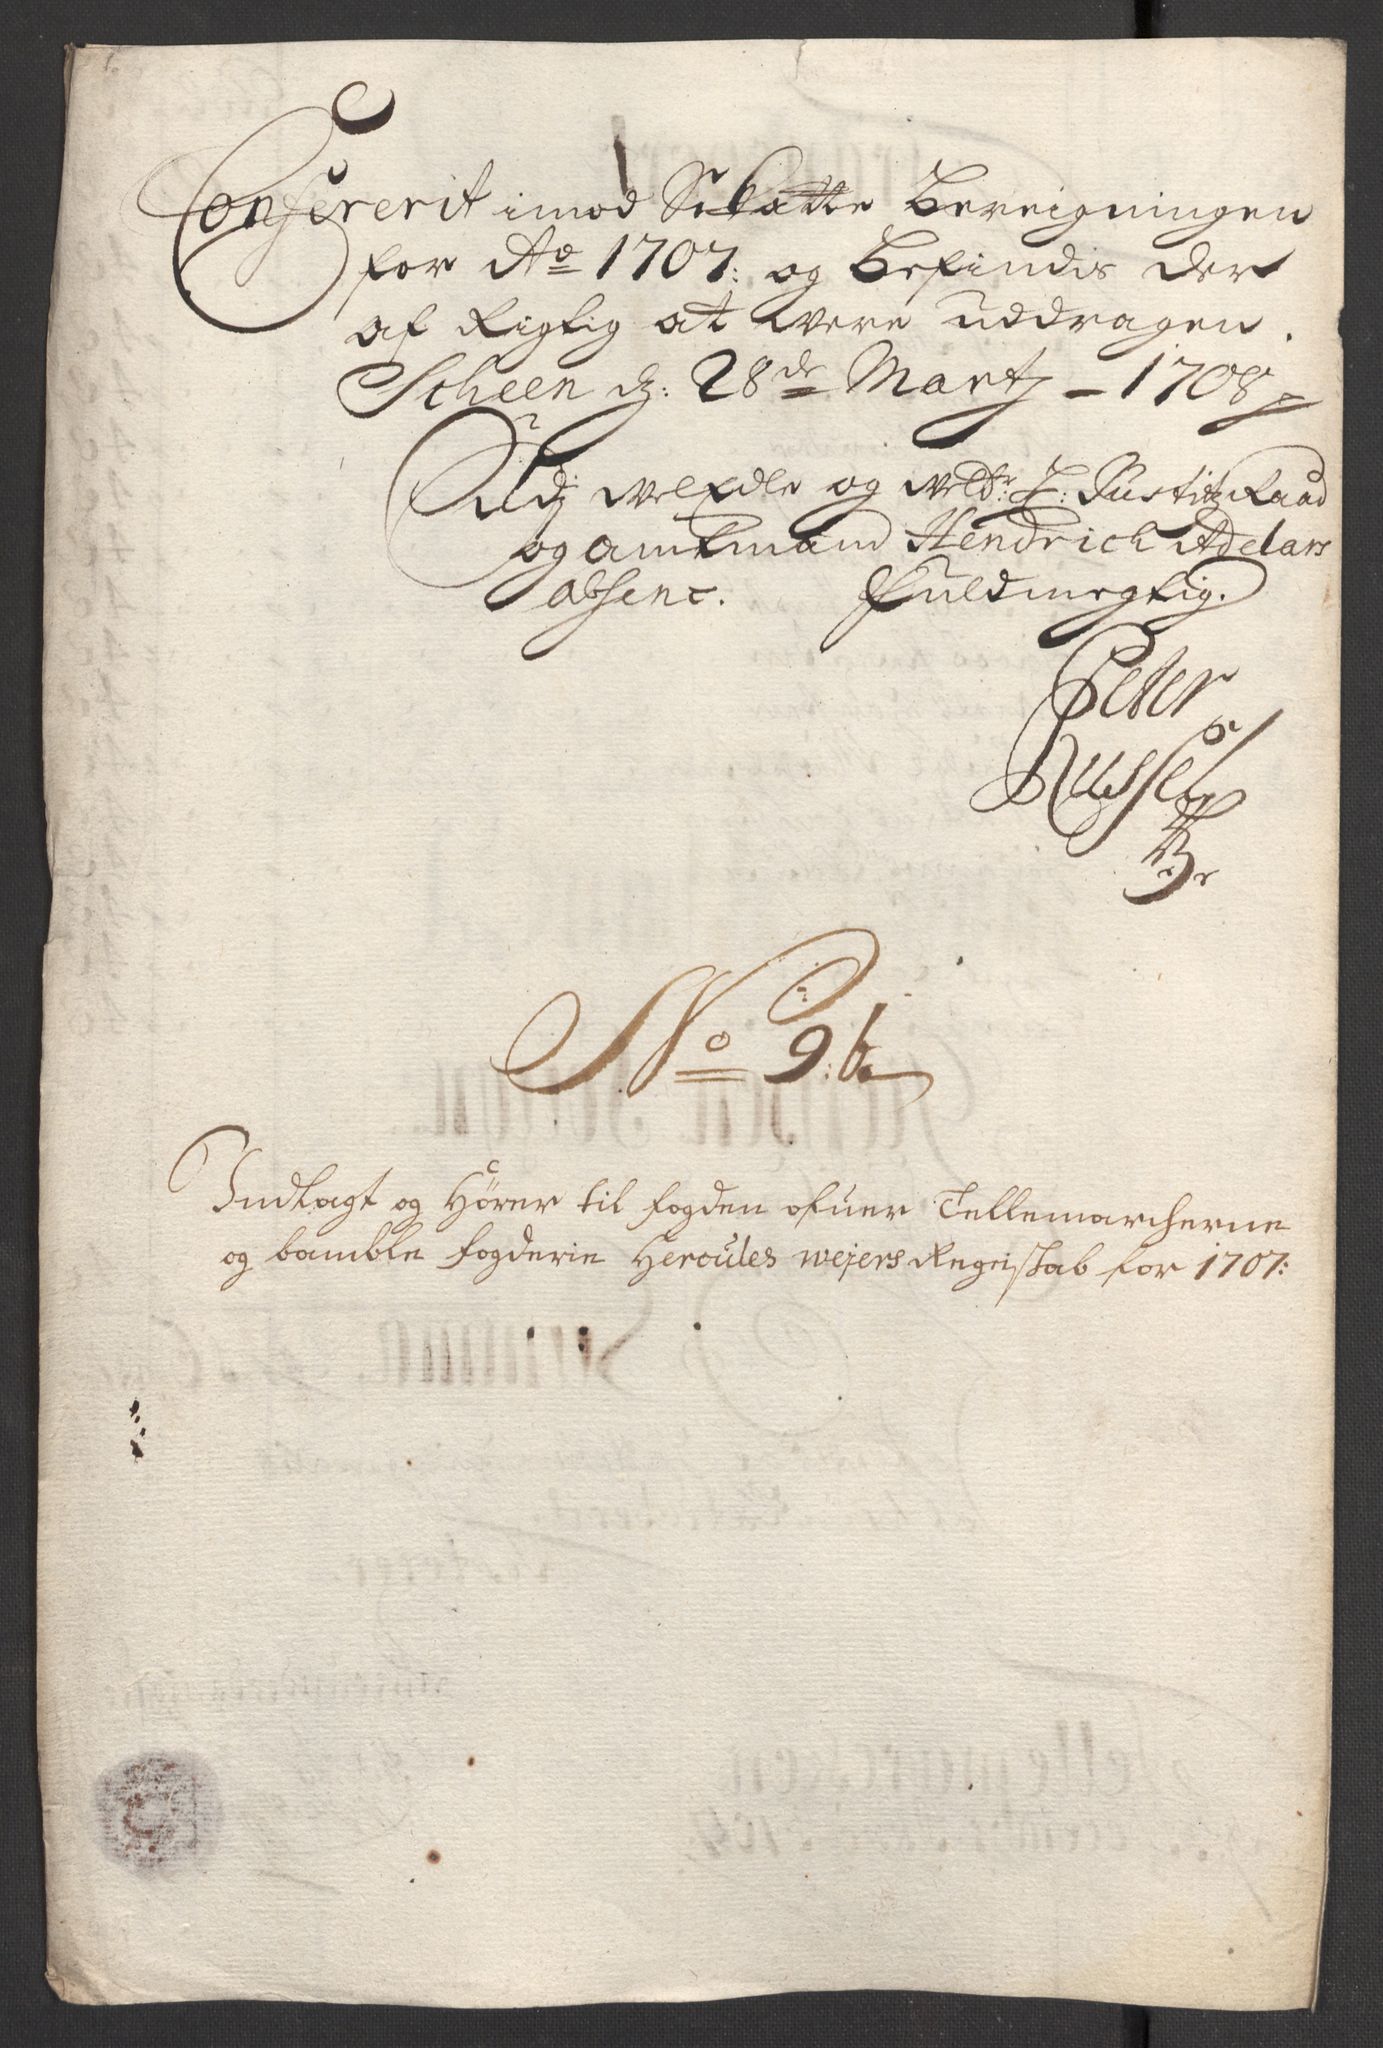 Confererit imod Skatte Bereigningen
for Ao 1707: og Befindis der
af Rigtig at were uddragen.
Scheen d: 28de Martj - 1708
Udj welEdle og welbr: H: Justitz Raad
og amtmand Hendrich Adelars
absenc. Fuldmegtig.
Peter
Russel
No 9: b.
Indlagt og Hører til fogden ofuer Tellemarcherne
og bamble fogderie Hercules Wejers Regnskab for 1707: